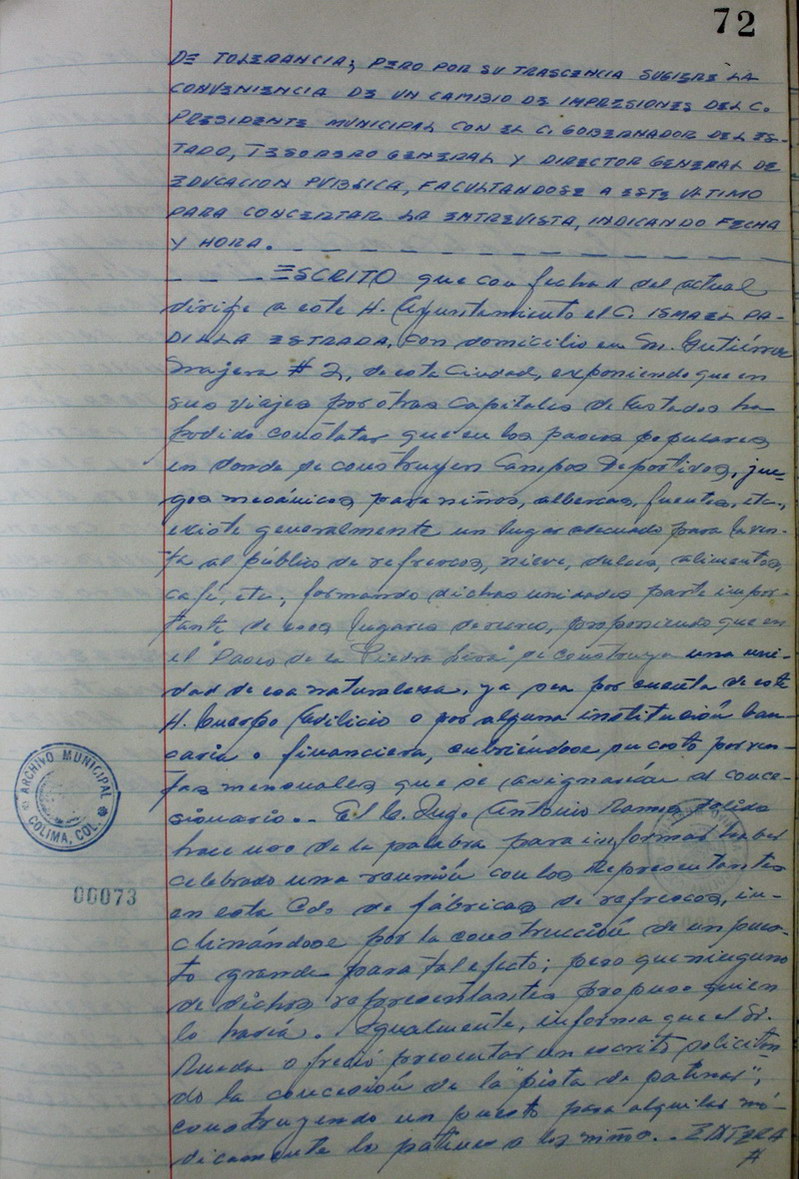 72
DE TOLERANCIA; PERO POR SU TRASCENCIA SUGIERE LA
CONVENIENCIA DE UN CAMBIO DE IMPRESIONES DEL C.
PRESIDENTE MUNICIPAL CON EL C. GOBERNADOR DEL ES-
TADO, TESORERO GENERAL Y DIRECTOR GENERAL DE
EDUCACION PUBLICA, FACULTANDOSE A ESTE ULTIMO
PARA CONCERTAR LA ENTREVISTA, INDICANDO FECHA
Y HORA. - - - - - - - - - - - - - - -
- - - ESCRITO que con fecha 11 del actual
dirije a este H. Ayuntamiento el C. ISMAEL PA-
DILLA ESTRADA, con domicilio en M. Gutiérrez
Najera # 2, de esta Ciudad, exponiendo que en
sus viajes por otras Capitales de Estados ha
podido constatar que en los paseos populares
en donde se construyen Campos Deportivos, jue-
gos mecánicos para niños, albercas, fuentes, etc.,
existe generalmente un lugar adecuado para la ven-
ta al público de refrescos, nieve, dulces, alimentos,
café, etc; formando dichas unidades parte impor-
tante de esos lugares de recreo, proponiendo que en
el "Paseo de la Piedra Lisa" se construya una uni-
dad de esa naturaleza, ya sea por cuenta de este
H. Cuerpo Edilicio o por alguna institución ban-
caria o financiera, cubriéndose su costo por ren-
tas mensuales que se asignarían al conce-
sionario.- El C. Ing. Antonio Ramos
hace uso de la palabra para informar haber
celebrado una reunión con los Representantes
en esta Cd. de fábricas de refrescos, in-
clinándose por la construcción de un pues-
to grande para tal efecto; pero que ninguno
de dichos representantes propuso quien
lo haría. Igualmente, informa que el Sr.
Rueda ofreció presentar un escrito solicitan-
do la concesión de la "pista de patinar",
construyendo un puesto para alquilar mó-
dicamente los patines a los niños.- ENTERA
#
ARCHIVO MUNICIPAL
COLIMA, COL.
00073